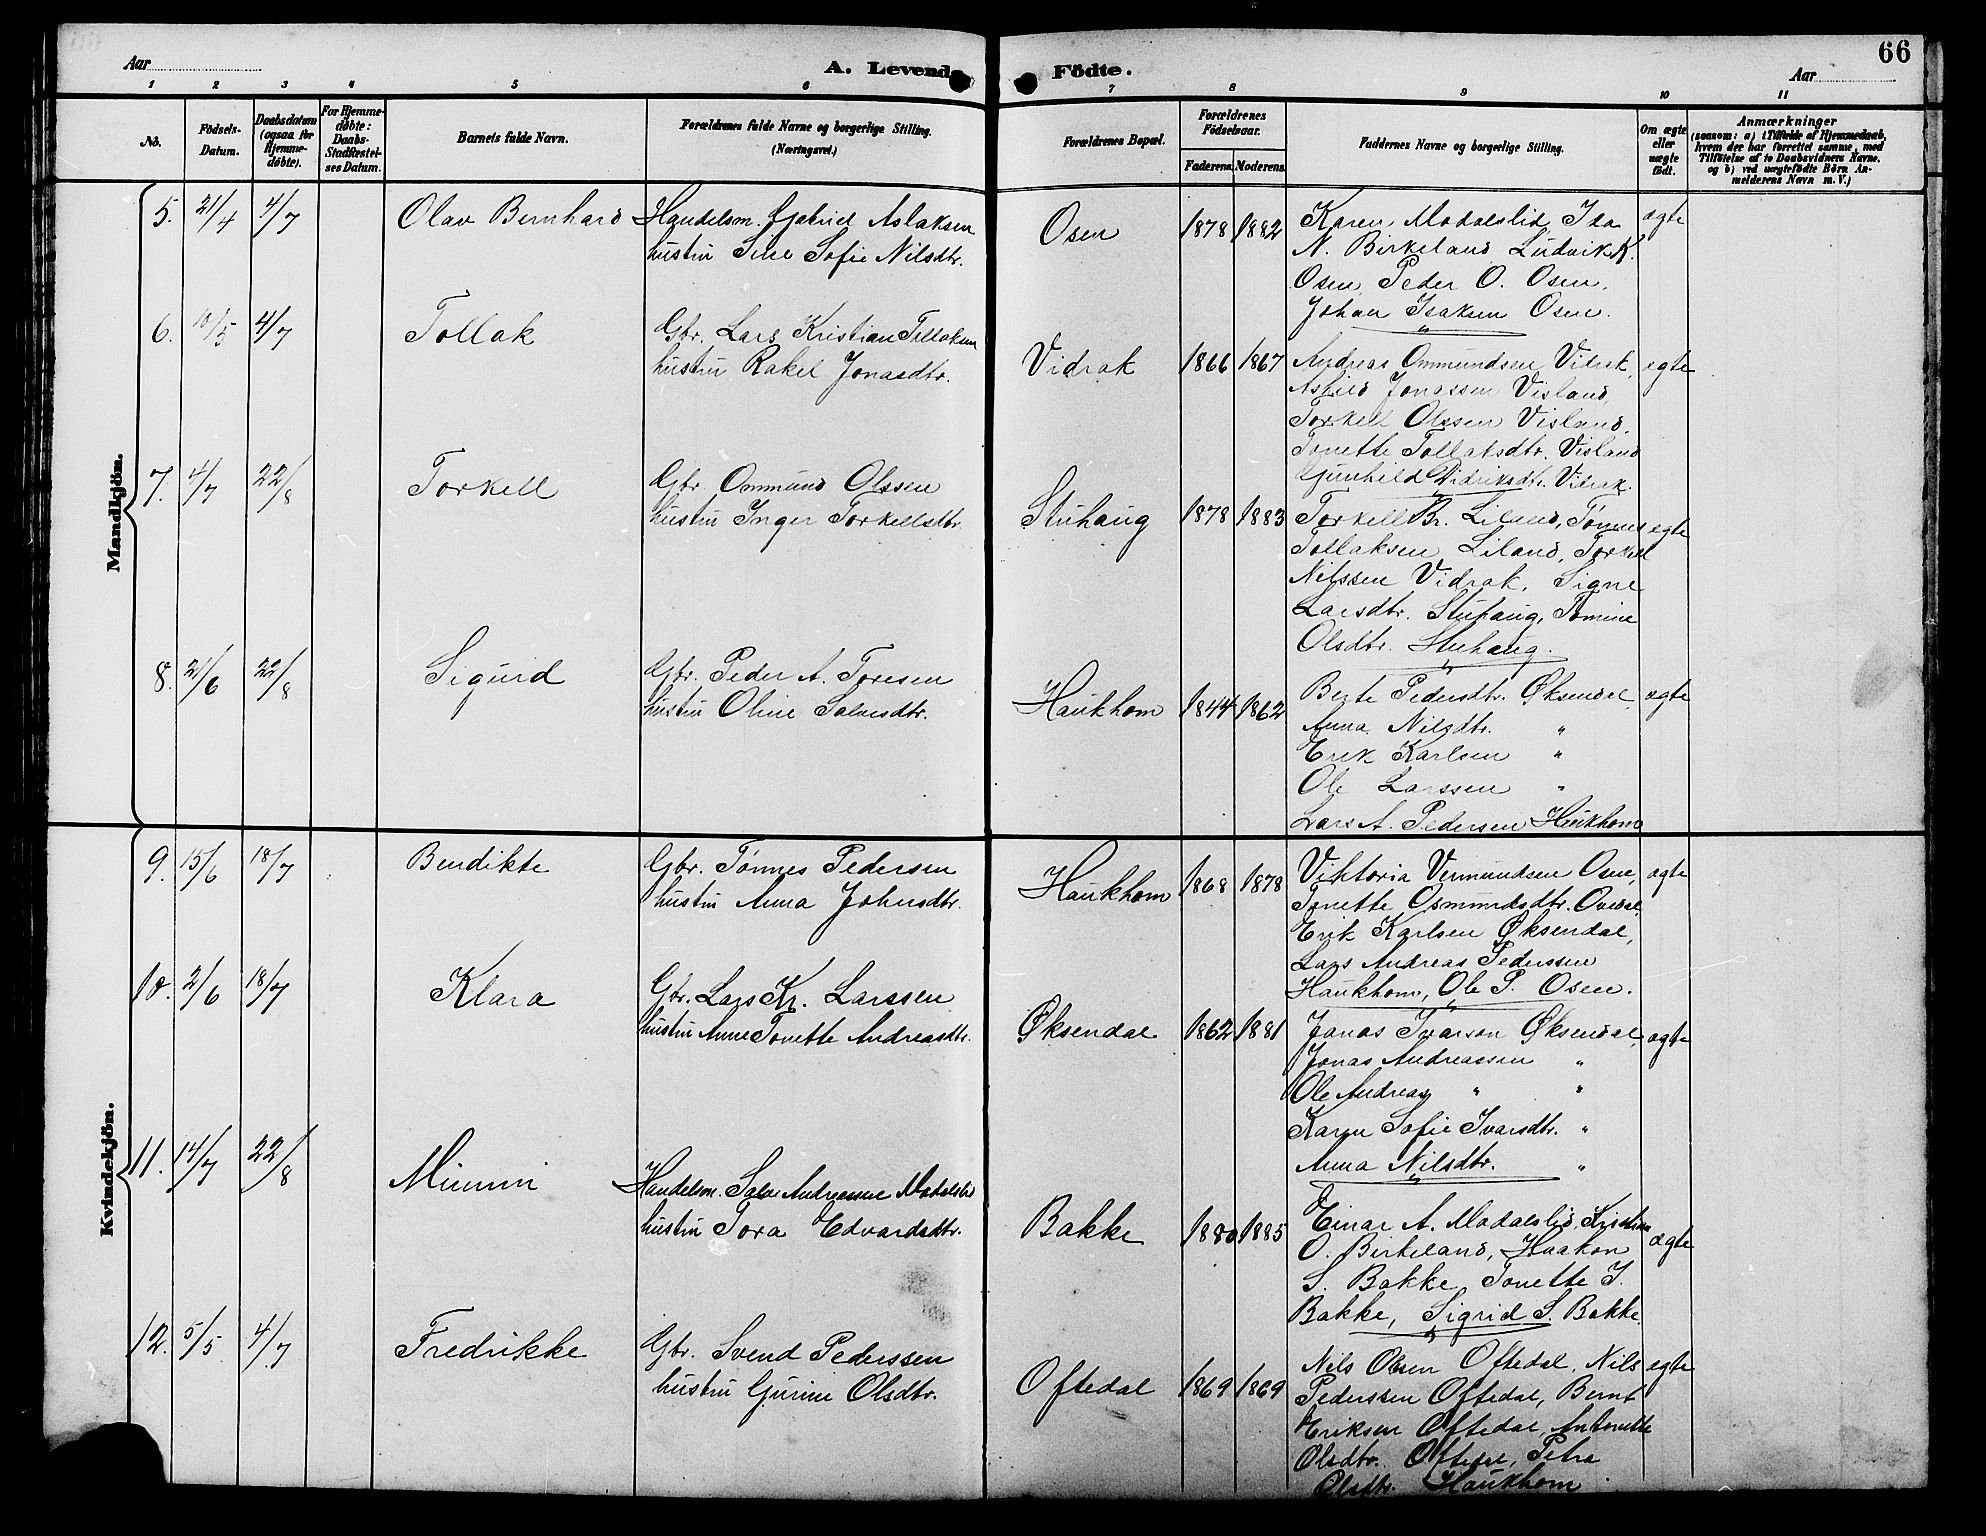 66
Aar
A. Levende
Födte.
Aar
1 2 3 4 5 6 7 8 9 10 11
No.
Födsels-
Datum.
Daabsdatum
(ogsaa for
Hjemme-
døbte).
For Hjemme-
døbte:
Daabs-
Stadfæstel-
ses Datum.
Barnets fulde Navn.
Forældrenes fulde Navne og borgerlige Stilling.
(Næringsvei.)
Forældrenes Bopæl.
Forældrenes
Fødselsaar.
Faderens.
Moderens.
Faddernes Navne og borgerlige Stilling.
Om ægte
eller
uægte
født.
Anmærkninger
(saasom: a) i Tilfælde af Hjemmedaab,
hvem der har forrettet samme, med
Tilføielse af to Daabsvidners Navne,
og b) ved uægtefødte Börn An-
melderens Navn m. V.)
Mandkjön.
5. 21/4 4/7 Olav Bernhard Handelsm. Gabriel Aslaksen
hustru Sine Sofie Nilsdtr.
Osen 1878 1882 Karen Modalslid, Isa ægte
N. Birkeland, Ludvik K.
Osen, Peder O. Osen,
Johan Isaksen Osen.
6. 10/5 4/7 Tollak Gbr. Lars Kristian Tollaksen
hustru Rakel Jonasdtr.
Vidrak 1866 1867 Andreas Ommundsen Vidrak, ægte
Jonassen Visland,
Torkell Olssen Visland,
Tonette Tollaksdtr. Visland
Gunhild Didriksdtr. Vidrak.
7. 4/7 22/8 Torkell Gbr. Ommund Olssen
hustru Inger Torkellsdtr.
Stuhaug 1878 1883 Torkell Br. Liland, Tønnes ægte
Tollaksen Liland, Torkell
Nilssen Vidrak, Signe
Larsdtr. Stuhaug, Tomine
Olsdtr. Stuhaug.
8. 21/6 22/8 Sigurd Gbr. Peder A. Toresen
hustru Oline Salvesdtr.
Haukhom 1844 1862 Berte Pedersdtr. Øksendal, ægte
Anna Nilsdtr. "
Erik Karlsen "
Ole Larssen "
Lars A. Pedersen Haukhom
Kvindekjön.
9. 15/6 18/7 Bendikte Gbr. Tønnes Pedersen
hustru Anna Johnsdtr.
Haukhom 1868 1878 Viktoria Vermundsen Osen, ægte
Tonette Osmundsdtr. Ovedal,
Erik Karlsen Øksendal,
Lars Andreas Pederssen
Haukhom, Ole P. Osen.
10. 2/6 18/7 Klara Gbr. Lars Kr. Larssen
hustru Anne Tonette Andreasdtr.
Øksendal 1862 1881 Jonas Ivarson Øksendal, ægte
Jonas Andreassen "
Ole Andreas " "
Karen Sofie Ivarsdtr. "
Anna Nilsdtr. "
11. 14/7 22/8 Minni Handelsm. Salve Andreassen Modalslid
hustru Tora Edvardsdtr.
Bakke 1880 1885 Einar A. Modalslid, Kristian ægte
O. Birkeland, Haakon
S. Bakke, Tonette J.
Bakke, Sigrid S. Bakke.
12. 5/5 4/7 Fredrikke Gbr. Svend Pederssen
hustru Gurine Olsdtr.
Oftedal 1869 1869 Nils Olsen Oftedal, Nils ægte
Pederssen Oftedal, Bernt
Eriksen Oftedal, Antonette
Olsdtr. Oftedal, Petra
Olsdtr. Haukhom